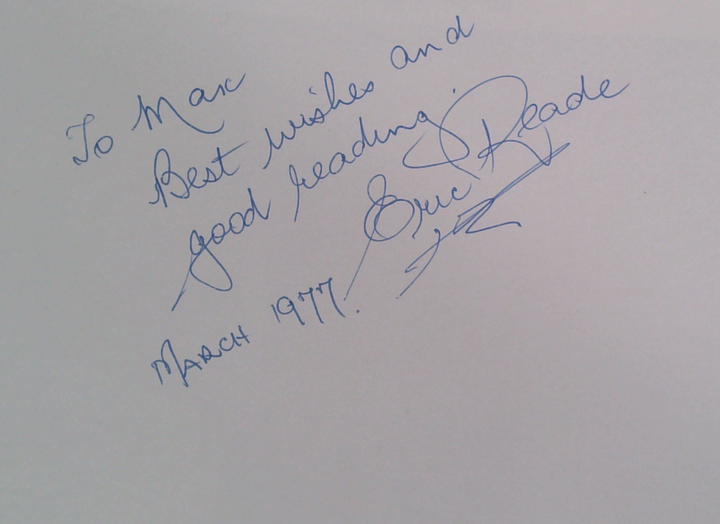 To Max
Best wishes and
good reading.
Eric Reade
MARCH 1977.